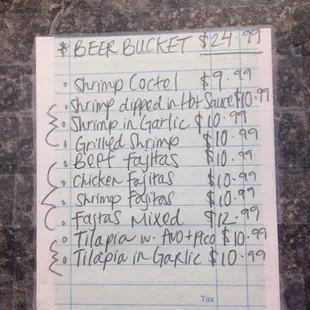 * BEER BUCKET $24.99
• Shrimp Coctel $9.99
• Shrimp dipped in Hot Sauce $10.99
• Shrimp in Garlic $10.99
• Grilled Shrimp $10.99
• Beef Fajitas $10.99
• Chicken Fajitas $10.99
• Shrimp Fajitas $10.99
• Fajitas Mixed $12.99
• Tilapia w. Avo+Pico $10.99
• Tilapia in Garlic $10.99
Tax